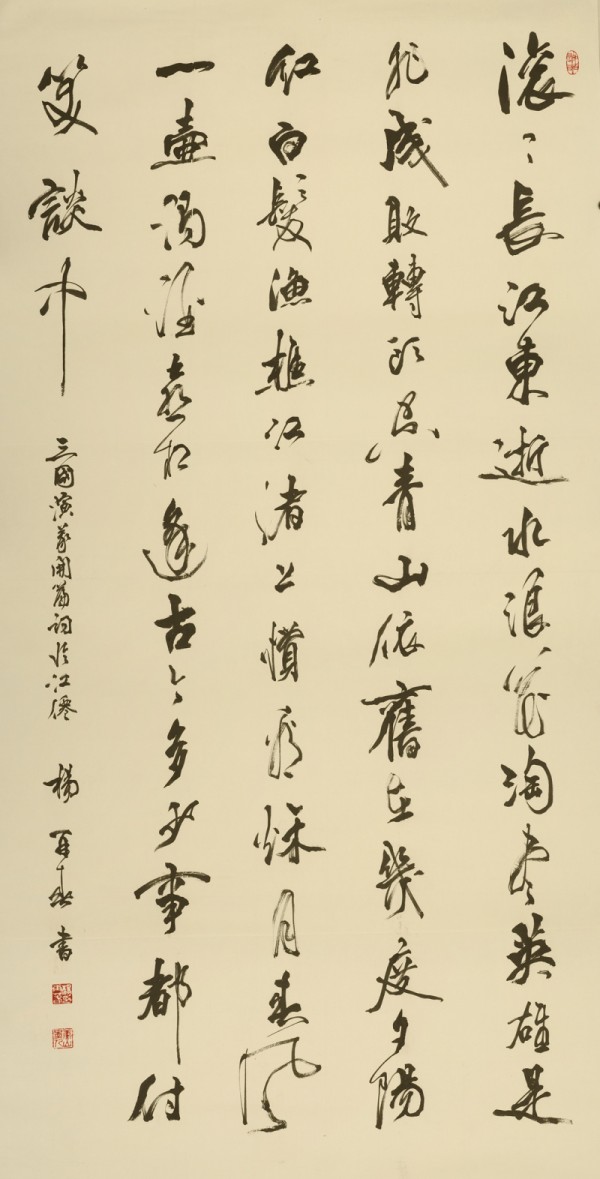 滚〻長江東逝水浪花淘尽英雄是
非成敗轉頭空青山依舊在幾度夕陽
紅白髮漁樵江渚上慣看秋月春風
一壺濁酒喜相逢古今多少事都付
笑談中
三國演義開篇詞臨江僊 楊再春書